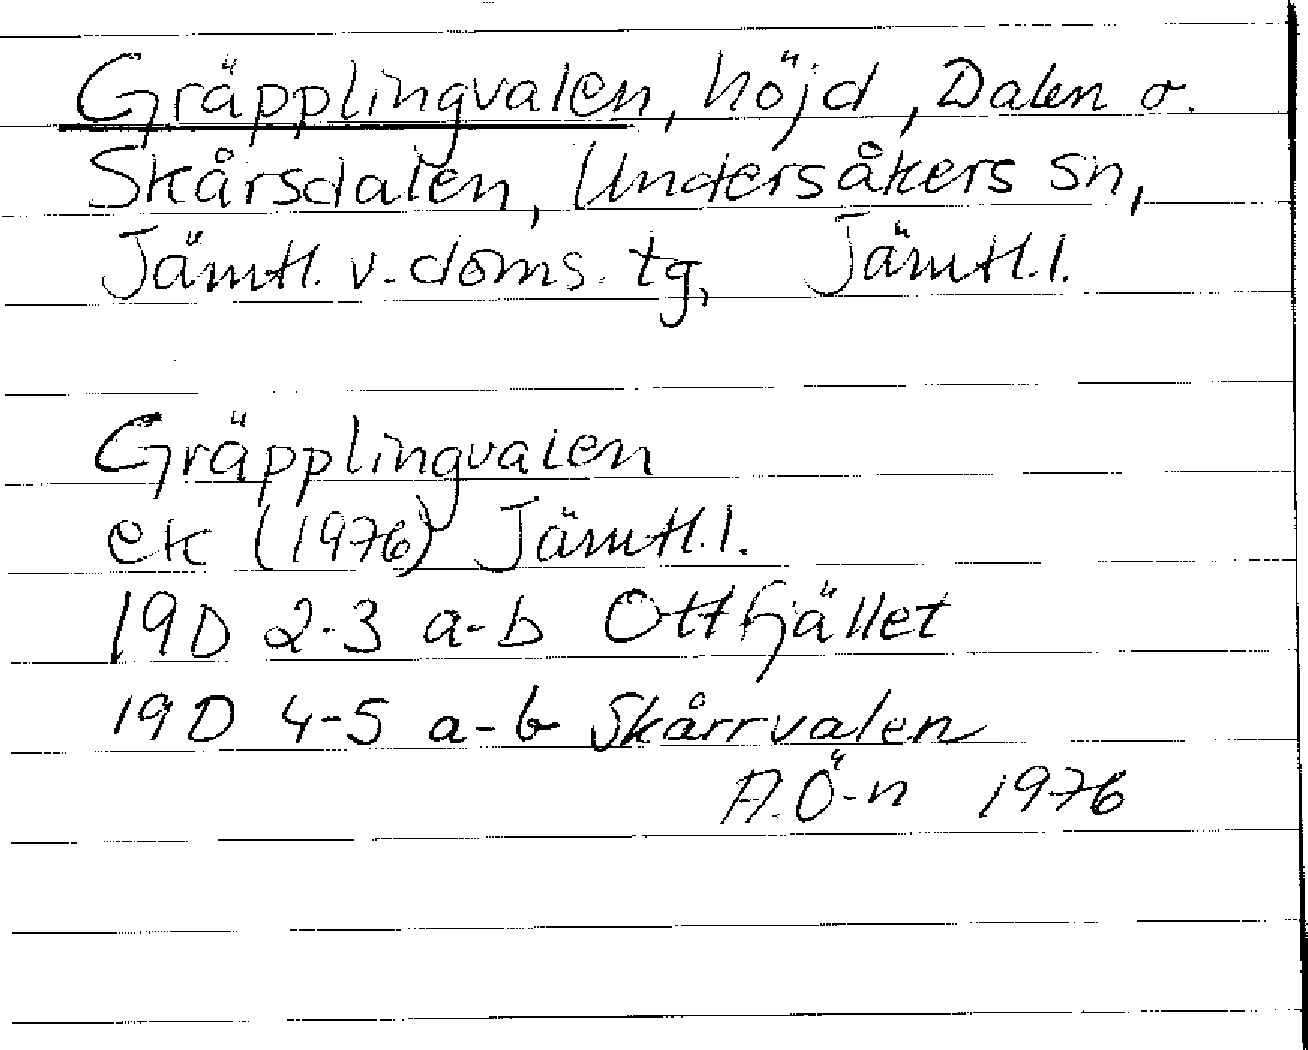 Gräpplingvalen, höjd, Dalen o.
Skårsdalen, Undersåkers sn,
Jämtl. v. doms. tg, Jämtl. l.
Gräpplingvalen
ek (1976) Jämtl. l.
19D 2-3 a-b Ottfjället
19D 4-5 a-b Skårrvalen
A.Ö-n 1976